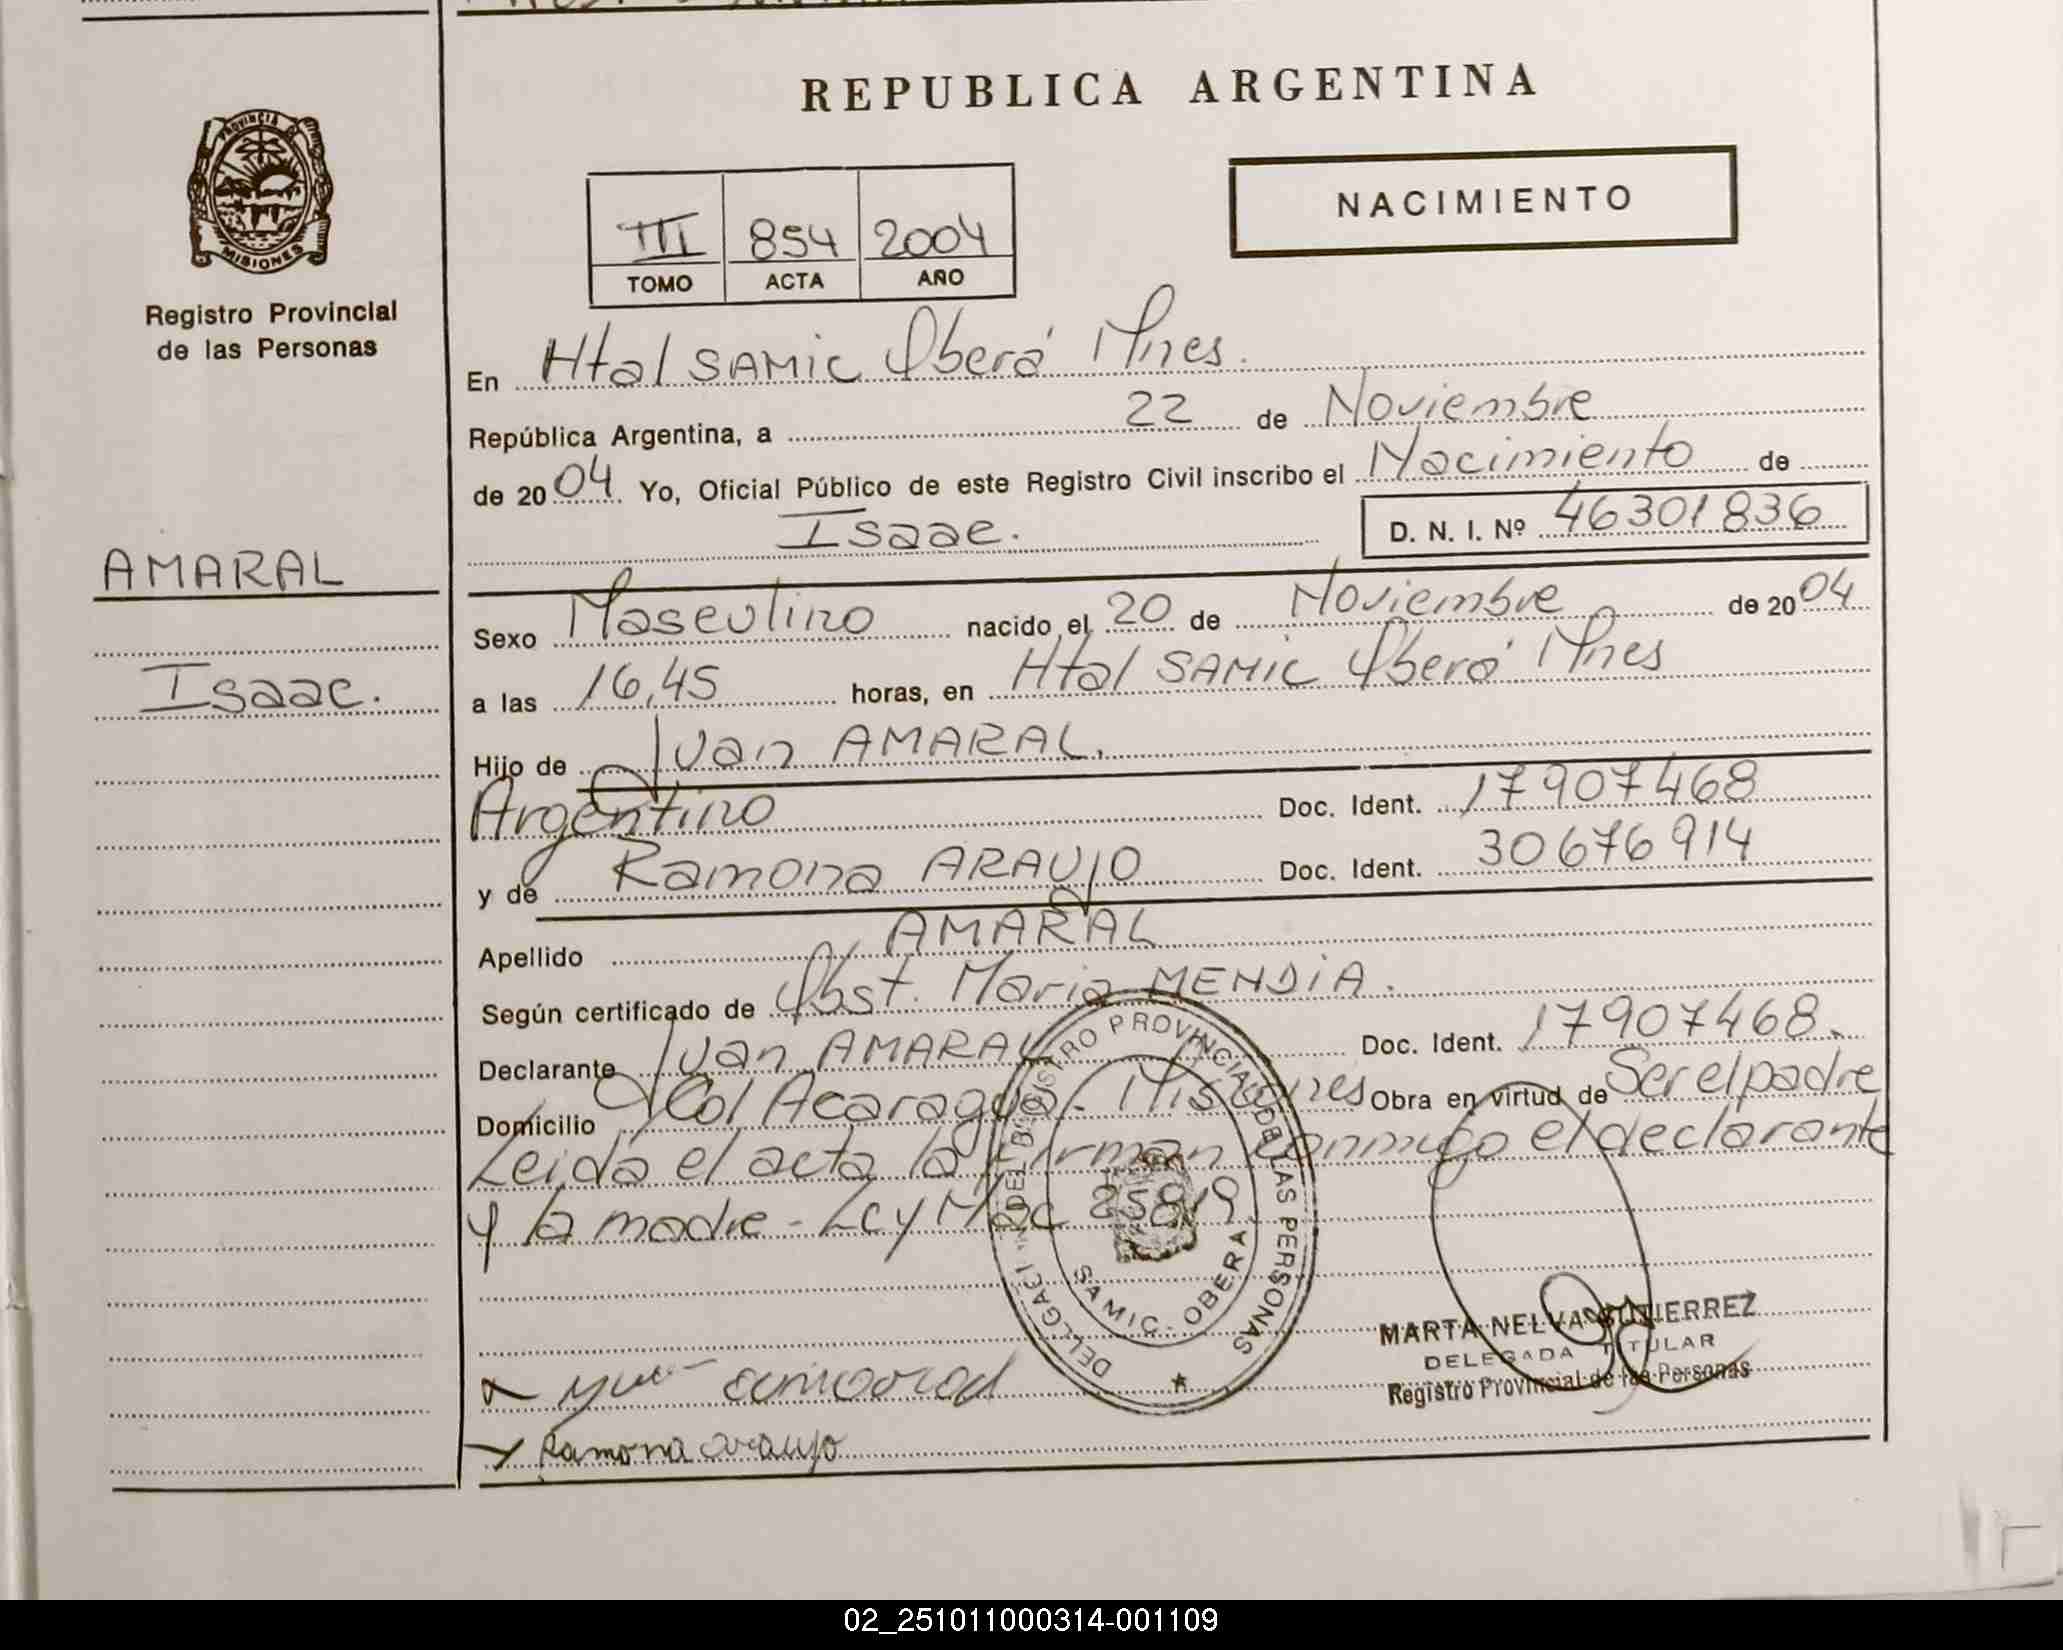 REPUBLICA ARGENTINA
PROVINCIA DE
MISIONES
Registro Provincial
de las Personas
NACIMIENTO
III 854 2004
TOMO ACTA AÑO
En Htal SAMIC Oberá Mnes.
República Argentina, a 22 de Noviembre
de 2004 Yo, Oficial Público de este Registro Civil inscribo el Nacimiento de
Isaac. D. N. I. Nº 46301836
AMARAL
Isaac.
Sexo Masculino nacido el 20 de Noviembre de 2004
a las 16,45 horas, en Htal SAMIC Oberá Mnes
Hijo de Juan AMARAL.
Argentino Doc. Ident. 17907468
y de Ramona ARAUJO Doc. Ident. 30676914
Apellido AMARAL
Según certificado de Obst. Maria MENDIA.
Declarante Juan AMARAL Doc. Ident. 17907468.
Domicilio Col Acaragua. Misiones Obra en virtud de Ser el padre
Leida el acta la firman conmigo el declarante
y la madre - Ley Nac 25819
REGISTRO PROVINCIAL DE LAS PERSONAS
SAMIC - OBERA
MARTA NELVA GUTIERREZ
DELEGADA TITULAR
Registro Provincial de las Personas
Ramona araujo
02_251011000314-001109